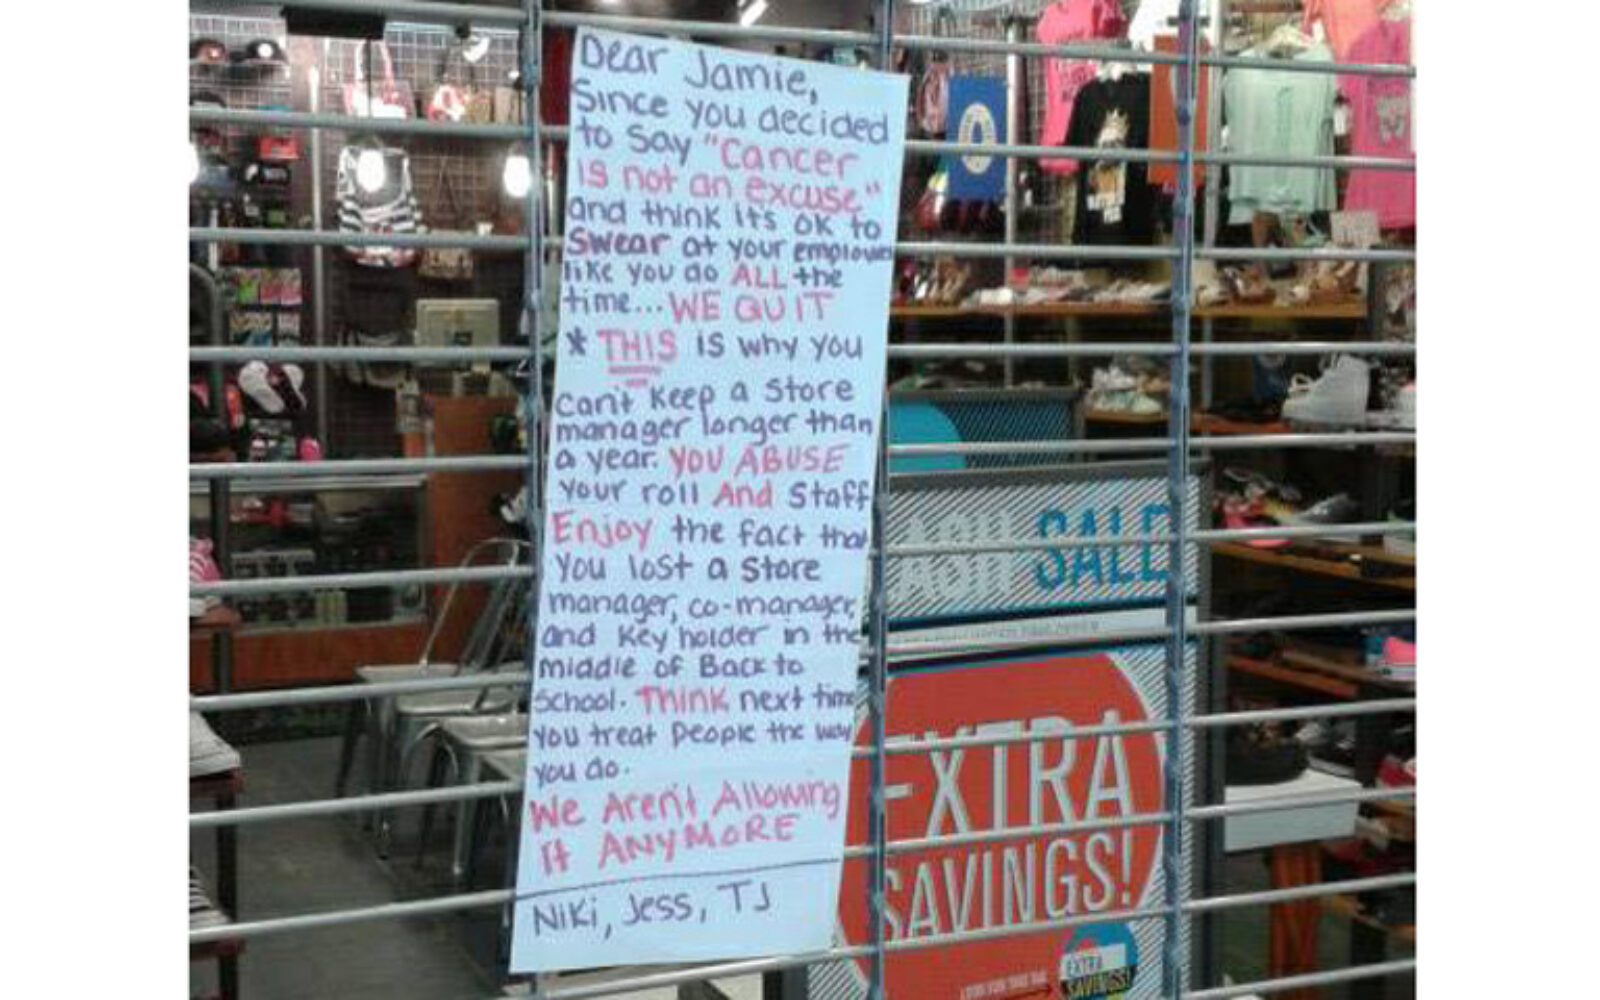 Dear Jamie,
Since you decided
to say "Cancer
is not an excuse"
and think it's ok to
swear at your employees
like you do ALL the
time... WE QUIT
* THIS is why you
can't keep a store
manager longer than
a year. YOU ABUSE
your roll And staff
Enjoy the fact that
you lost a store
manager, co-manager,
and key holder in the
middle of Back to
School. THINK next time
you treat people the way
you do.
We Aren't Allowing
It ANYMORE
Niki, Jess, TJ
SALE
EXTRA
SAVINGS!
EXTRA
SAVINGS!